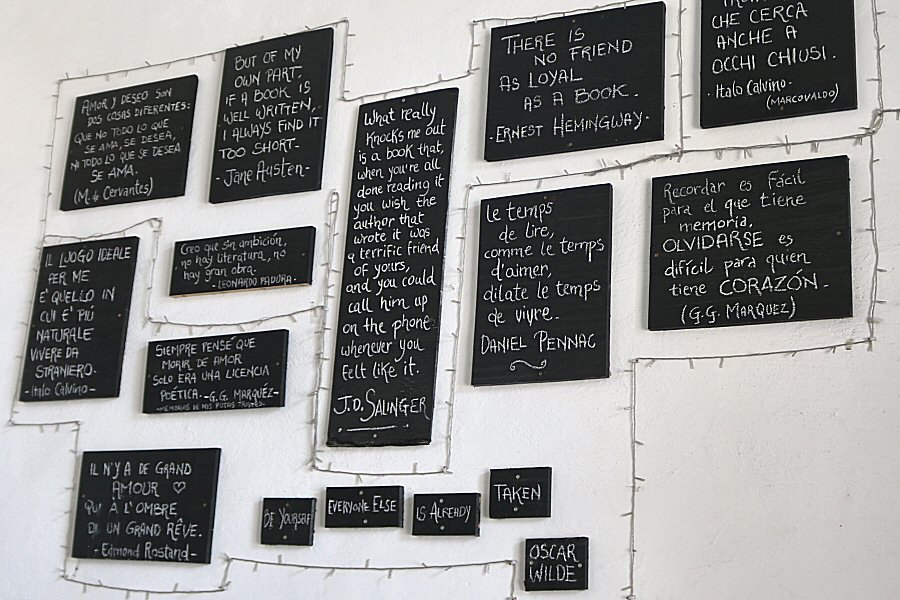 AMOR Y DESEO SON
DOS COSAS DIFERENTES:
QUE NO TODO LO QUE
SE AMA, SE DESEA,
NI TODO LO QUE SE DESEA
SE AMA.
(M. de Cervantes)
BUT OF MY
OWN PART,
IF A BOOK IS
WELL WRITTEN,
I ALWAYS FIND IT
TOO SHORT-
-Jane Austen-
What really
Knocks me out
is a book that,
when you're all
done reading it
you wish the
author that
wrote it was
a terrific friend
of yours,
and you could
call him up
on the phone
whenever you
felt like it.
J.D. SALINGER
THERE IS
NO FRIEND
AS LOYAL
AS A BOOK.
-ERNEST HEMINGWAY-
CHE CERCA
ANCHE A
OCCHI CHIUSI.
-Italo Calvino-
(MARCOVALDO)
IL LUOGO IDEALE
PER ME
E' QUELLO IN
CUI E' PIÚ
NATURALE
VIVERE DA
STRANIERO.
-Italo Calvino-
Creo que sin ambición,
no hay literatura, no
hay gran obra.
-LEONARDO PADURA-
SIEMPRE PENSÉ QUE
MORIR DE AMOR
SOLO ERA UNA LICENCIA
POÉTICA.-G.G. MARQUEZ-
-MEMORIAS DE MIS PUTAS TRISTES-
le temps
de lire,
comme le temps
d'aimer,
dilate le temps
de vivre.
DANIEL PENNAC
Recordar es Fácil
para el que tiene
memoria,
OLVIDARSE es
difícil para quien
tiene CORAZÓN.
(G.G. MARQUEZ)
IL N'Y A DE GRAND
AMOUR ♡
QU' À L'OMBRE
D' UN GRAND RÊVE.
-Edmond Rostand-
BE YOURSELF
EVERYONE ELSE
IS ALREADY
TAKEN
OSCAR
WILDE